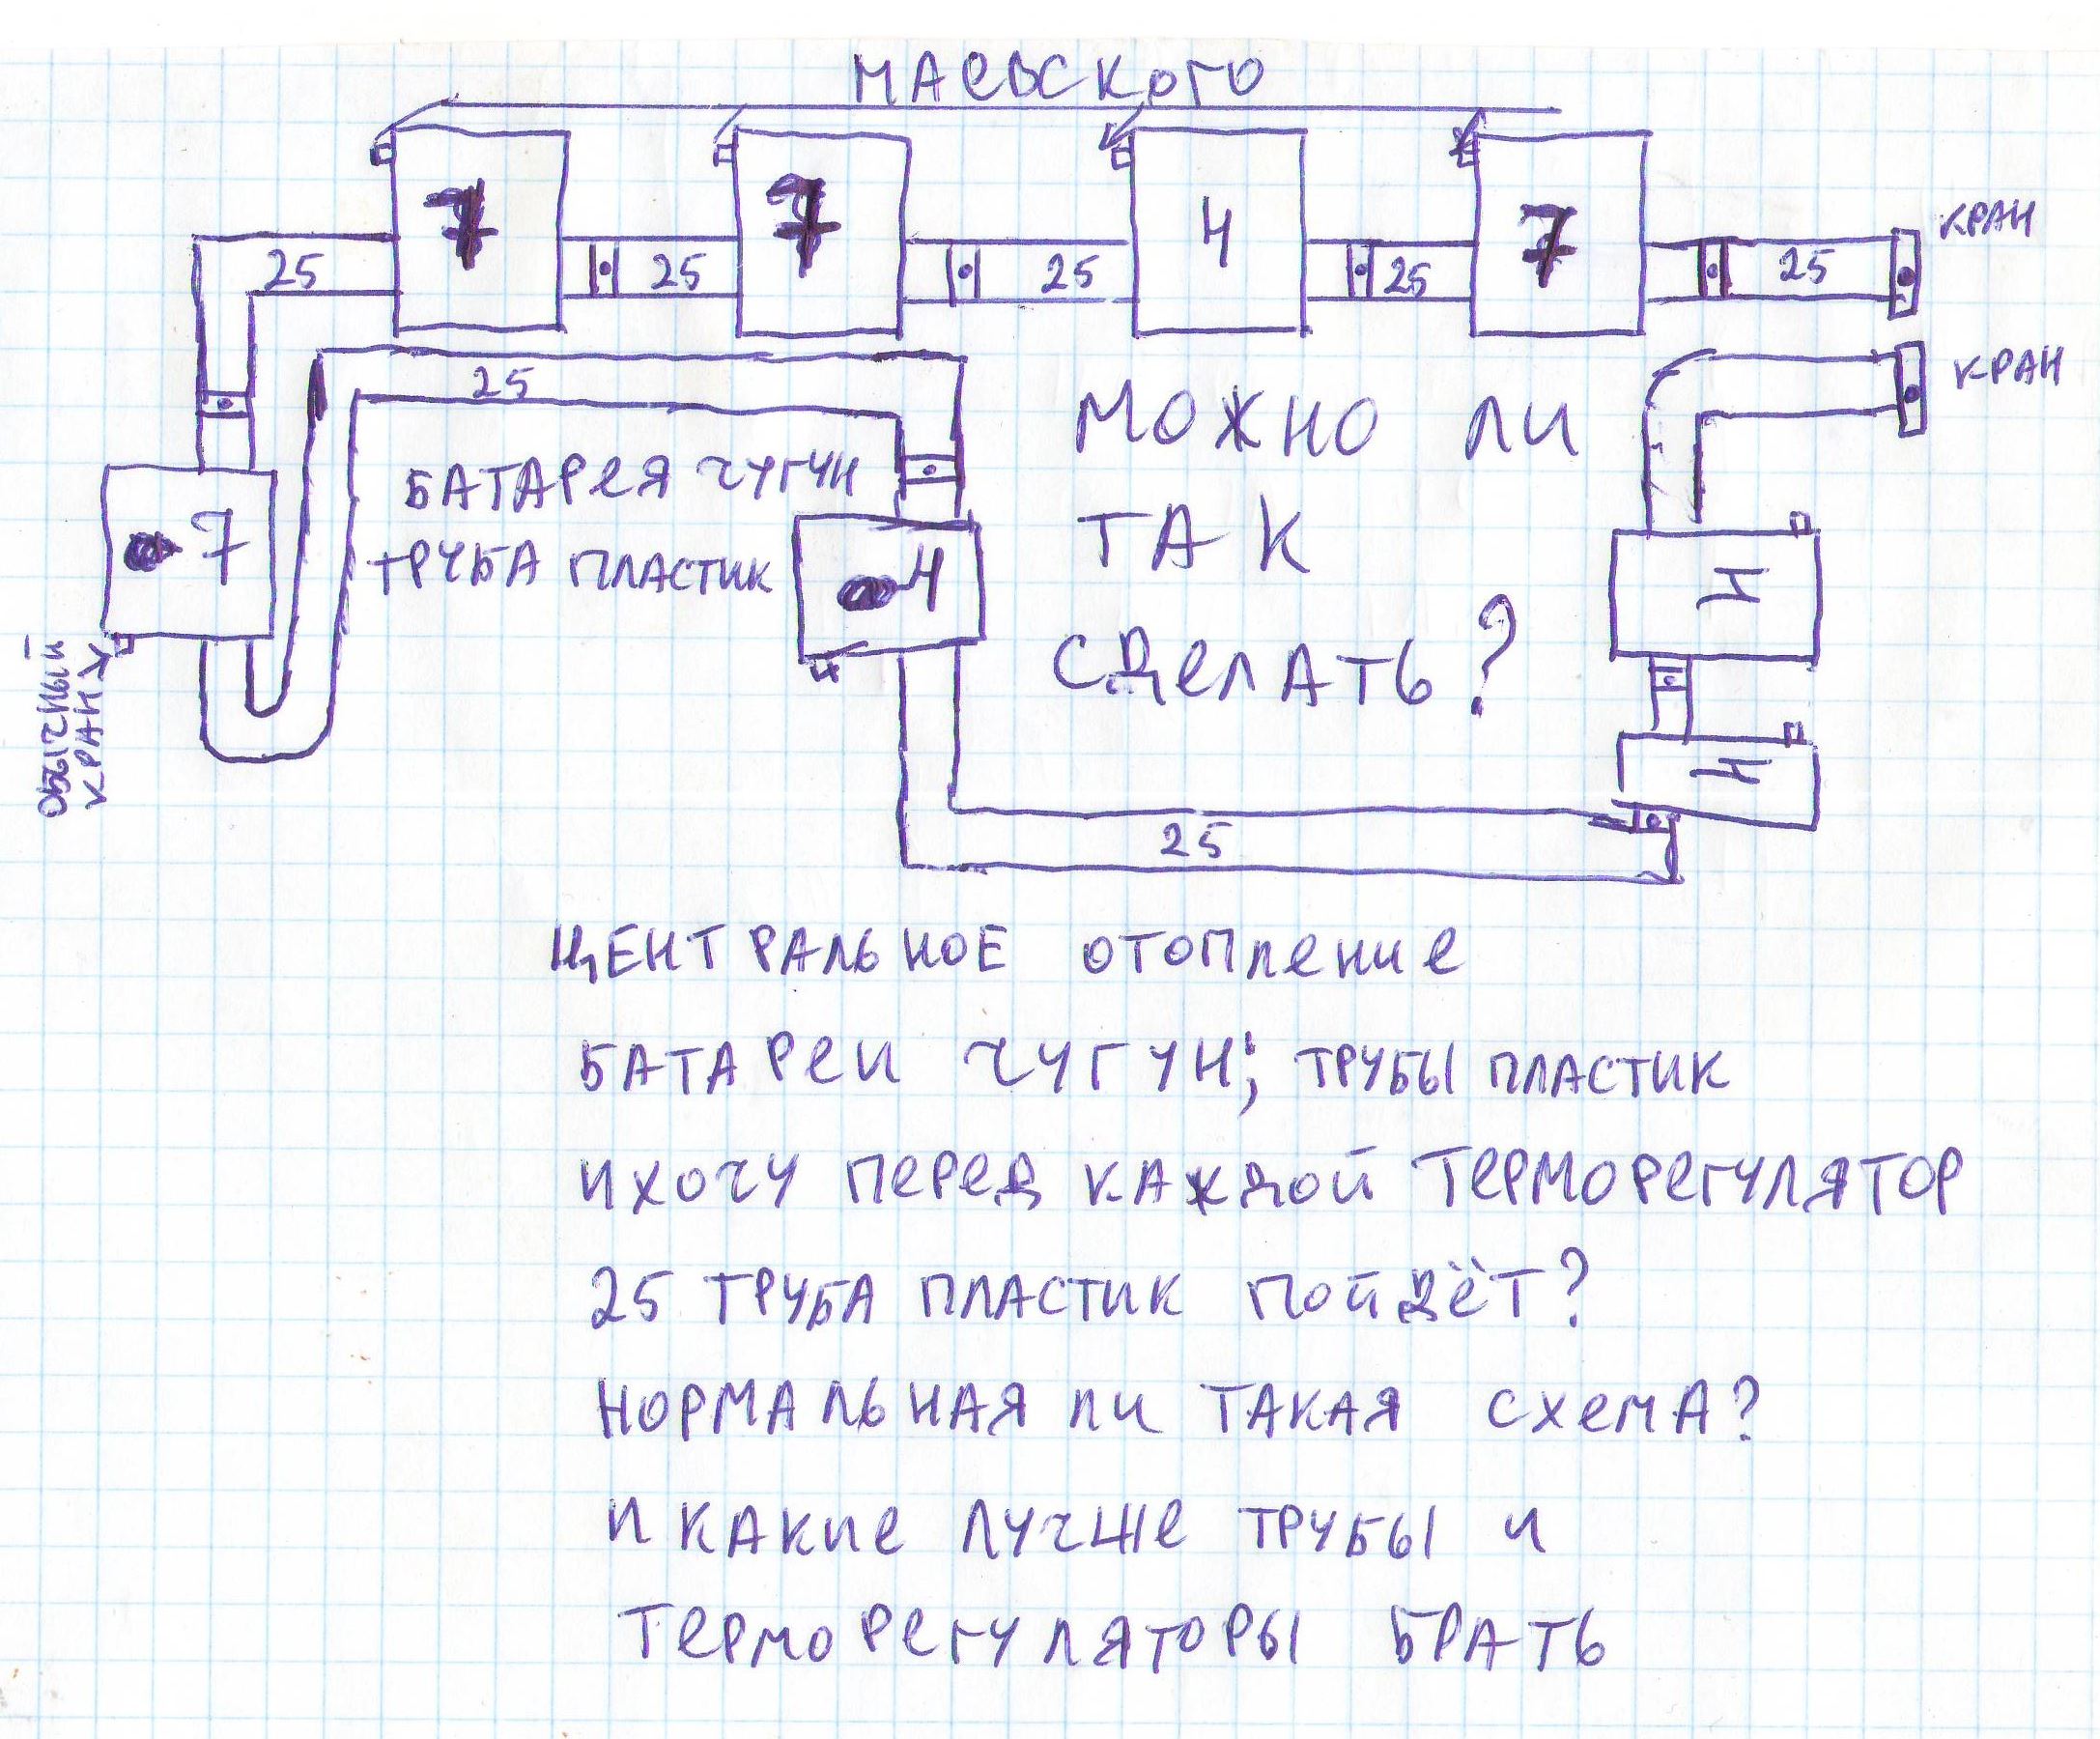 МАЕВСКОГО
7 7 4 7
КРАН
25 25 25 25 25
КРАН
25
МОЖНО ЛИ
БАТАРЕЯ ЧУГУН
ТАК
7
ТРУБА ПЛАСТИК
4
4
СДЕЛАТЬ?
ОБЫЧНЫЙ
КРАН
4
25
ЦЕНТРАЛЬНОЕ ОТОПЛЕНИЕ
БАТАРЕИ ЧУГУН; ТРУБЫ ПЛАСТИК
И ХОЧУ ПЕРЕД КАЖДОЙ ТЕРМОРЕГУЛЯТОР
25 ТРУБА ПЛАСТИК ПОЙДЁТ?
НОРМАЛЬНАЯ ЛИ ТАКАЯ СХЕМА?
И КАКИЕ ЛУЧШЕ ТРУБЫ И
ТЕРМОРЕГУЛЯТОРЫ БРАТЬ